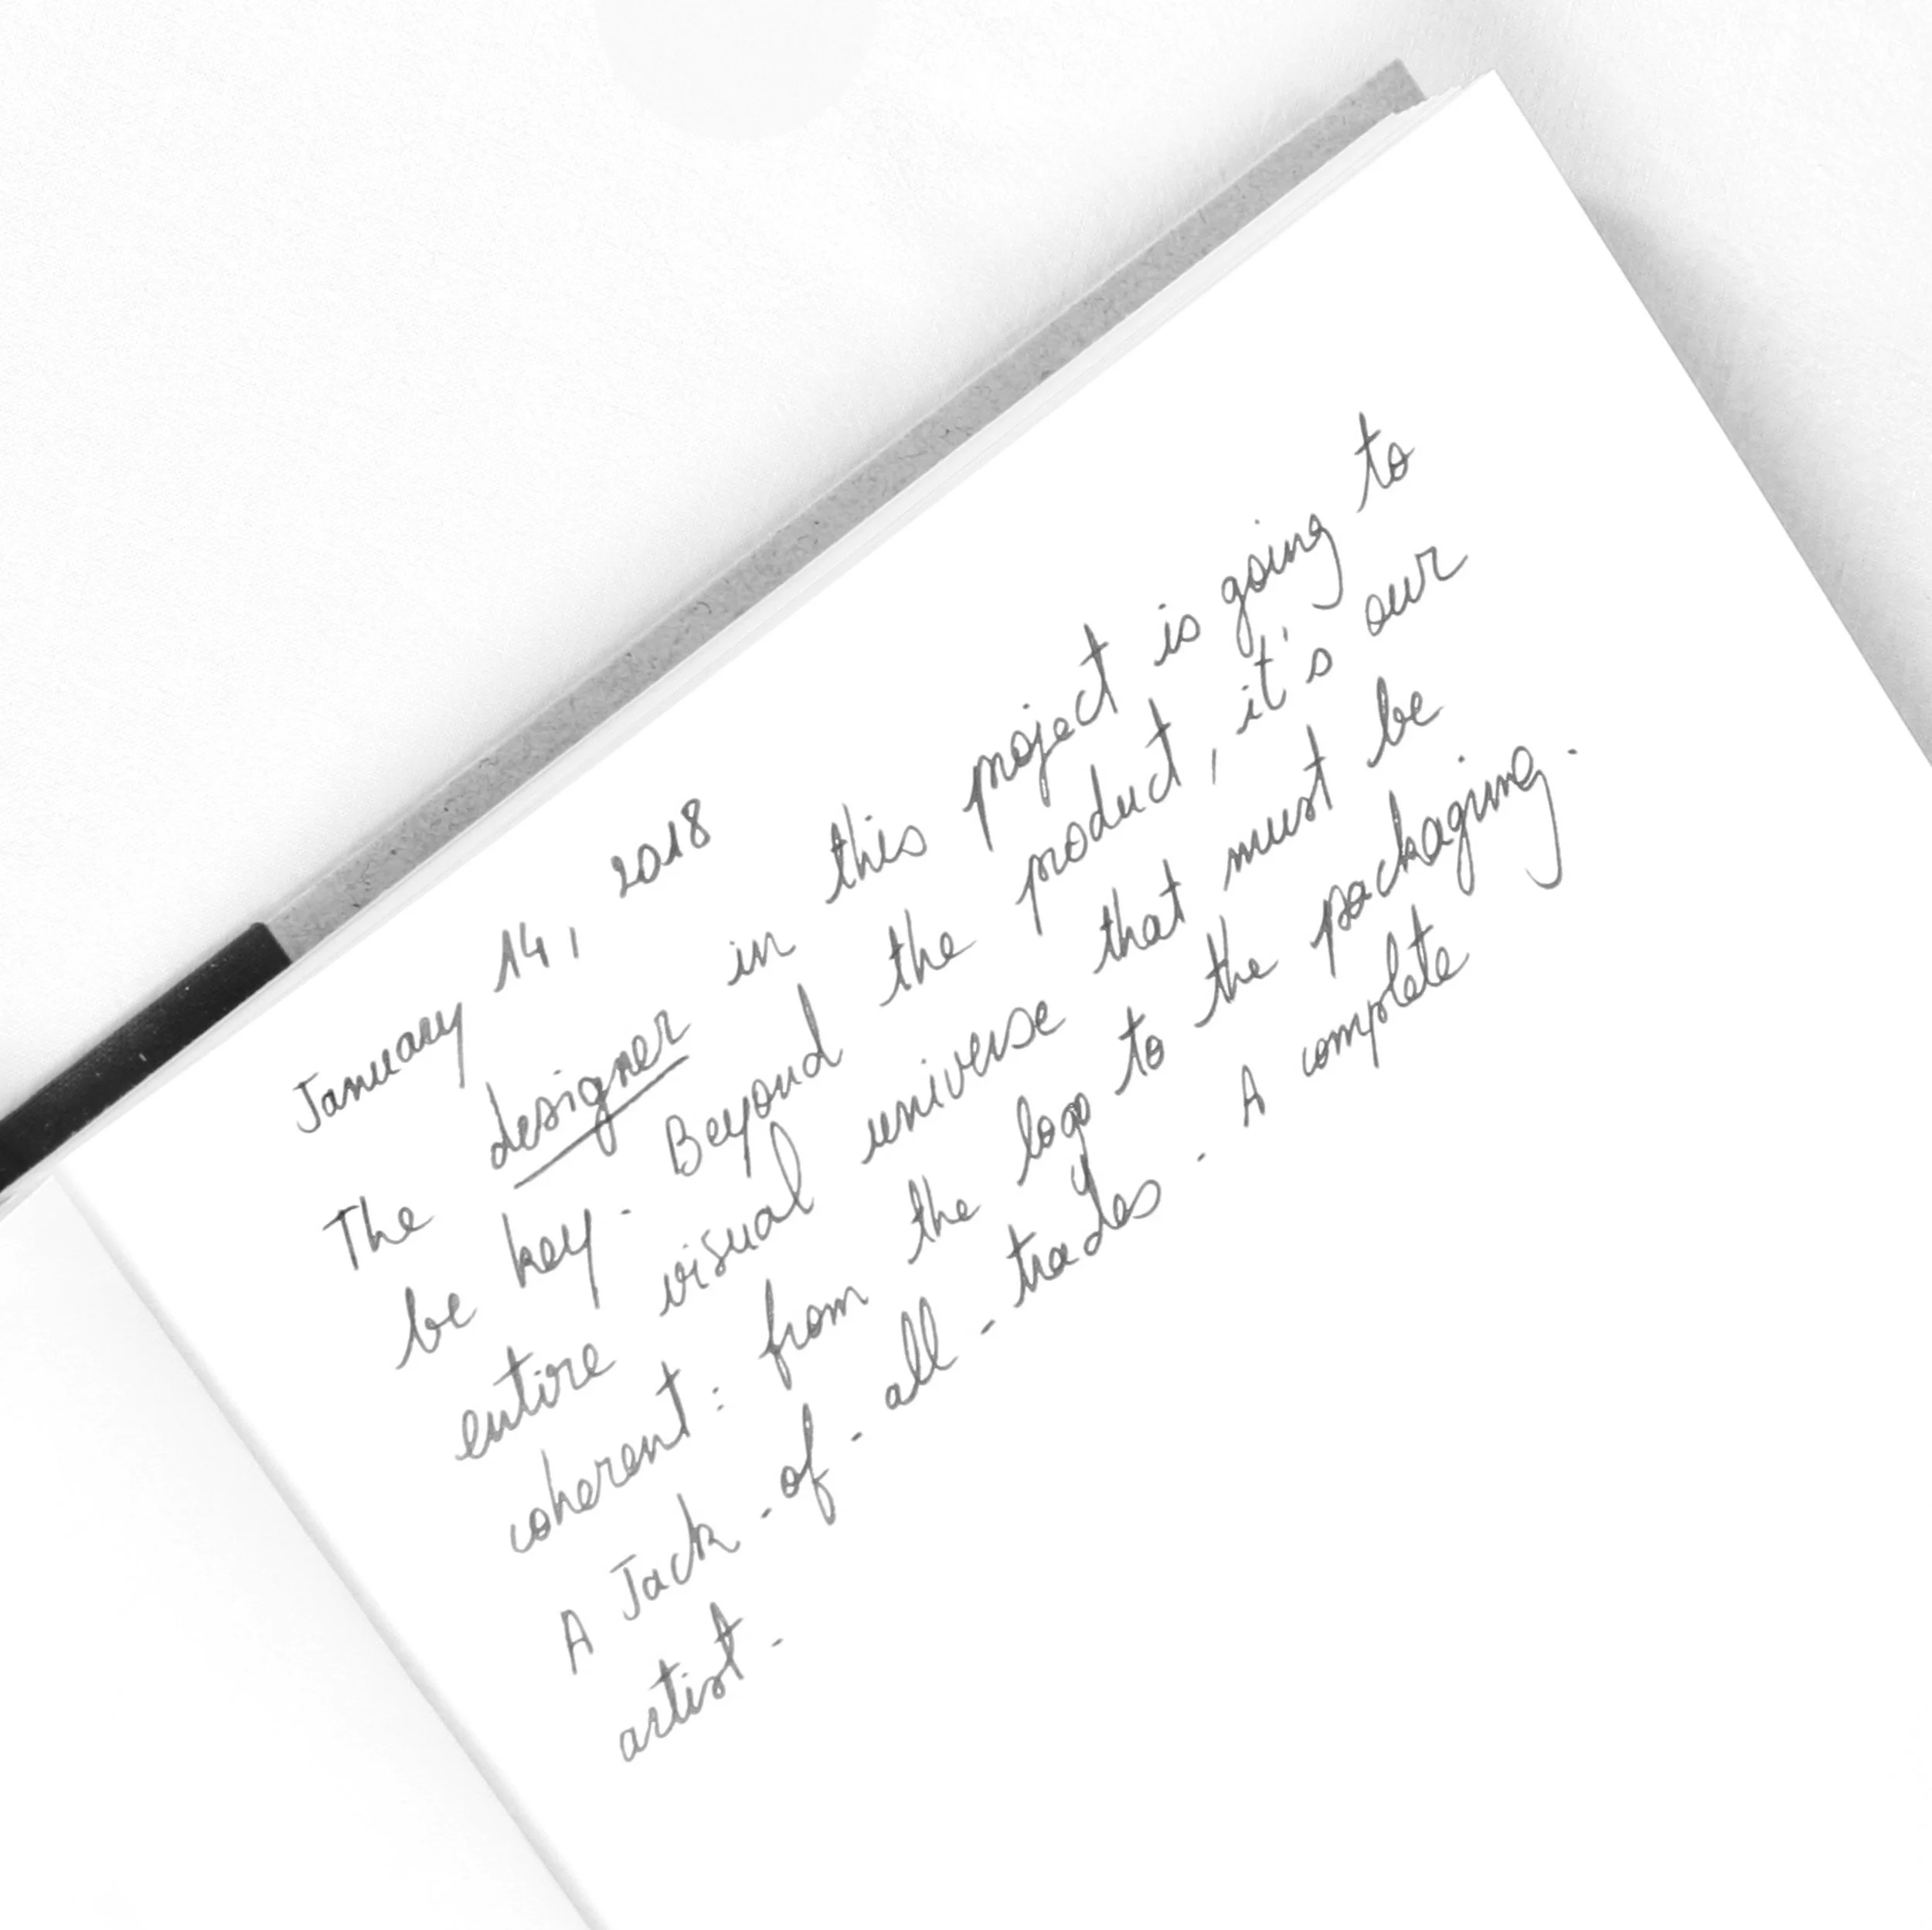 January 14, 2018
The designer in this project is going to
be key. Beyond the product, it's our
entire visual universe that must be
coherent: from the logo to the packaging.
A Jack-of-all-trades. A complete
artist.